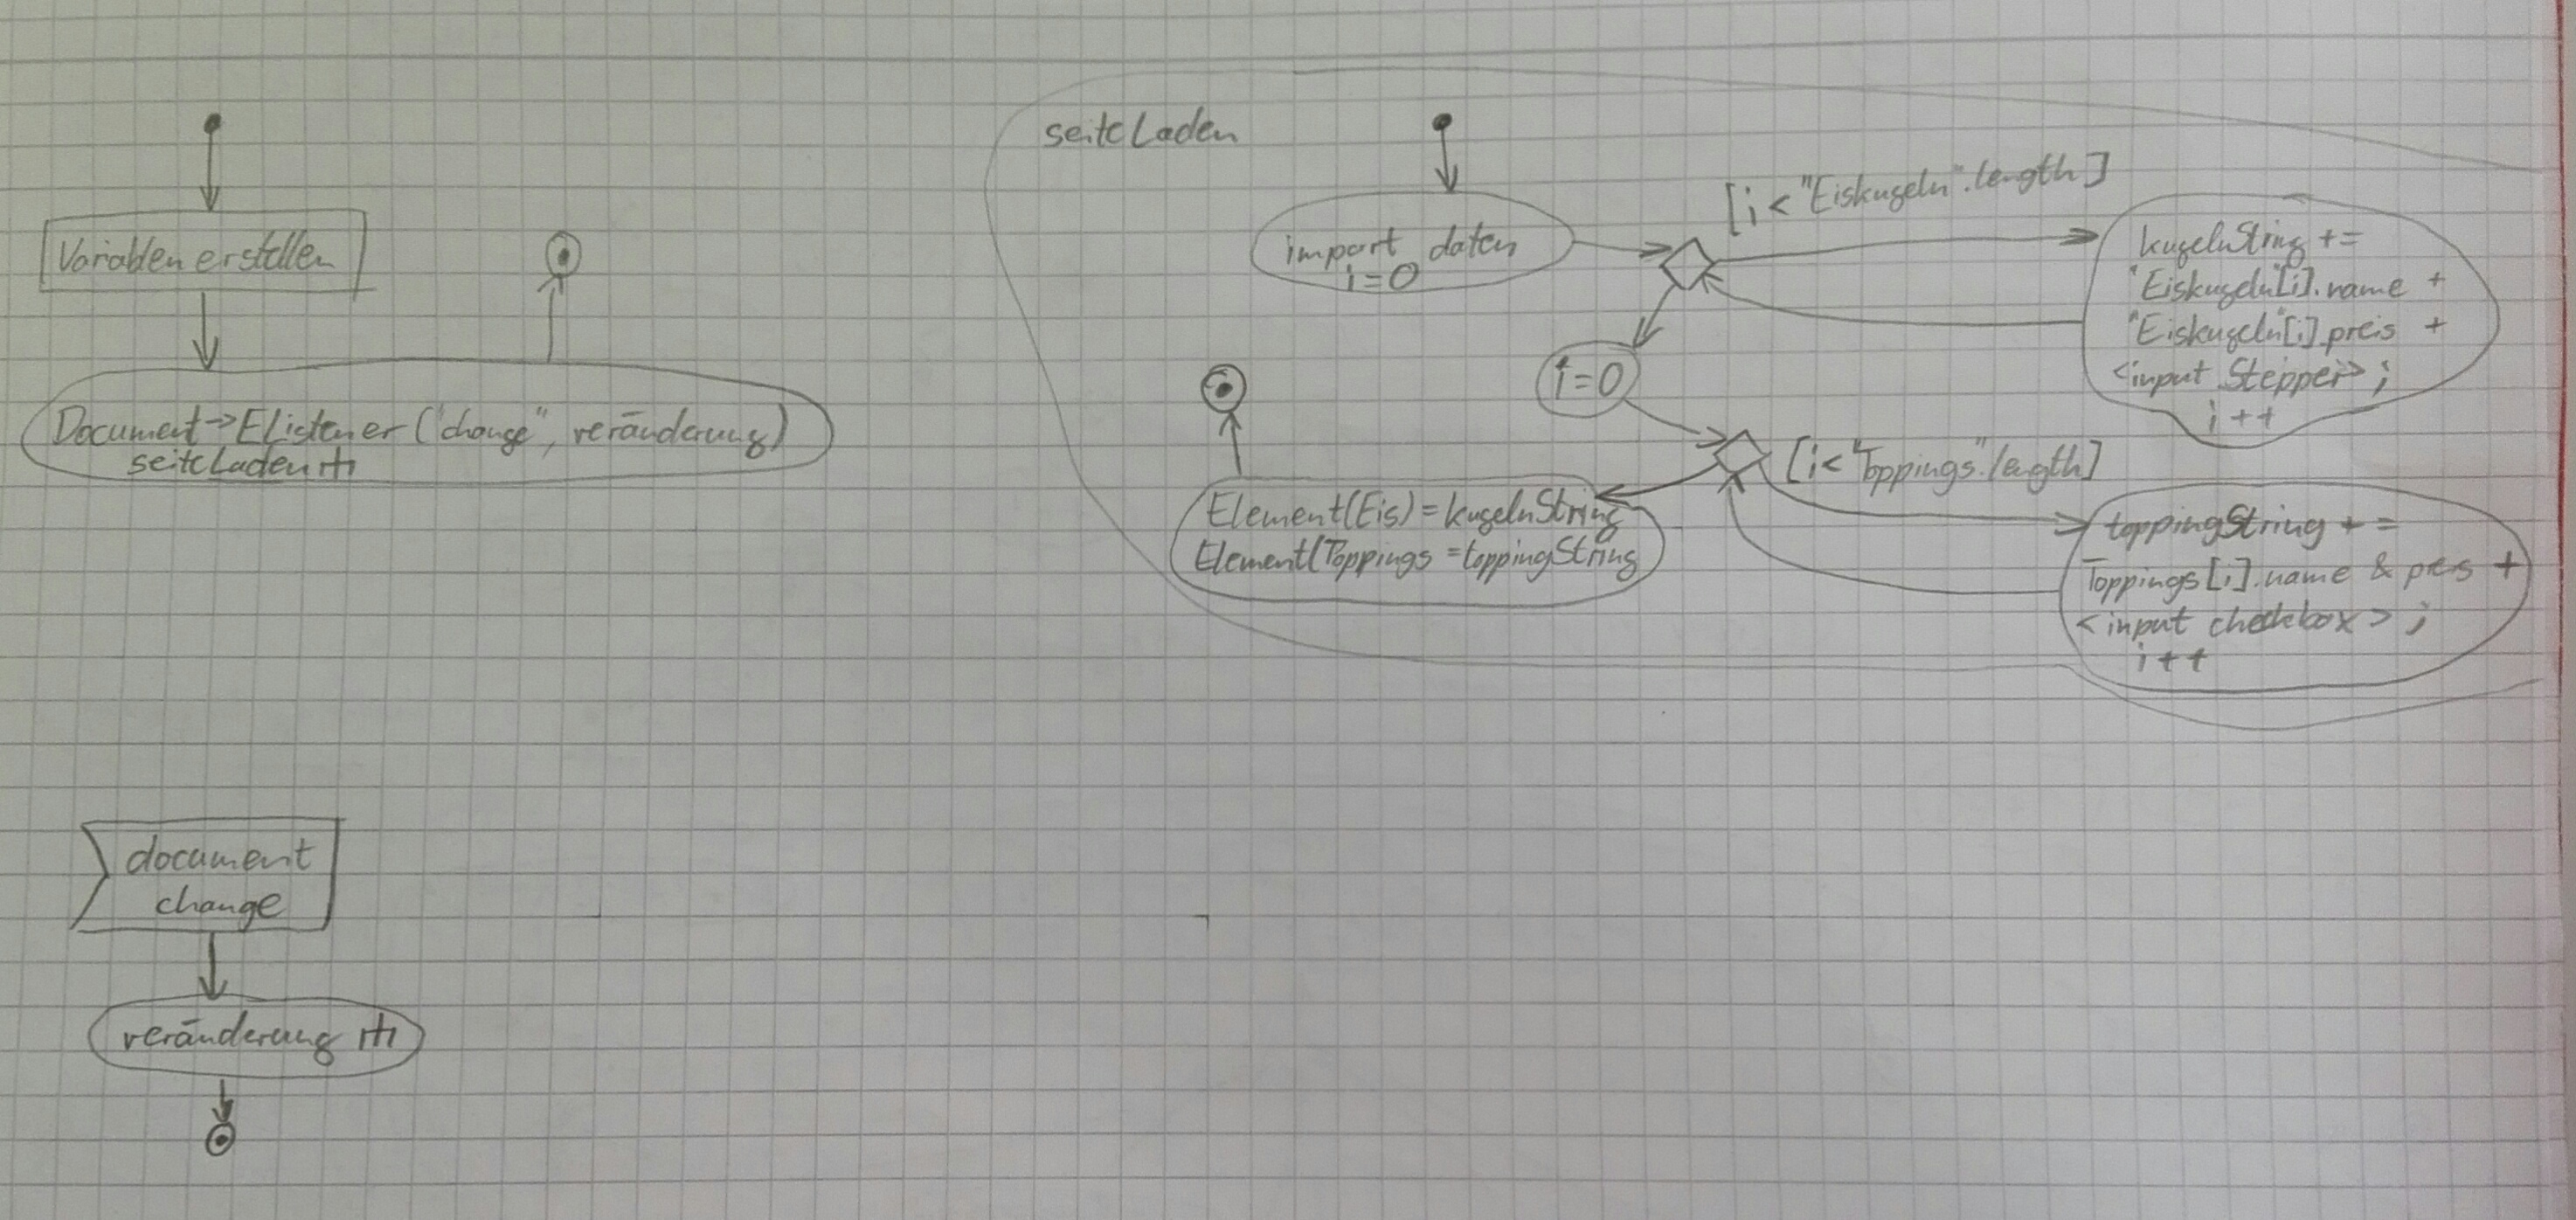 Variablen erstellen
Document->EListener ("change", veränderung)
seiteLaden
seiteLaden
import daten
i=0
[i < "Eiskugeln".length]
kugelnString +=
"Eiskugeln"[i].name +
"Eiskugeln"[i].preis +
<input Stepper> ;
i++
i=0
[i<"Toppings".length]
toppingString +=
Toppings[i].name & preis +
<input checkbox> ;
i++
Element(Eis) = kugelnString
Element(Toppings = toppingString
document
change
veränderung